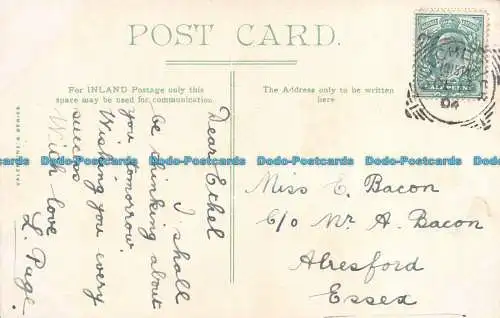 POST CARD.
For INLAND Postage only this
space may be used for communication.
The Address only to be written
here
VALENTINE'S SERIES
Dear Ethel
I shall
be thinking about
you tomorrow.
Wishing you every
success
With love
L. Page.
Miss E. Bacon
C/o Mr A. Bacon
Alresford
Essex
HALFPENNY
04
Bodo-Postcards Bodo-Postcards Bodo-Postcards Bodo-Postcards Bodo-Postcards